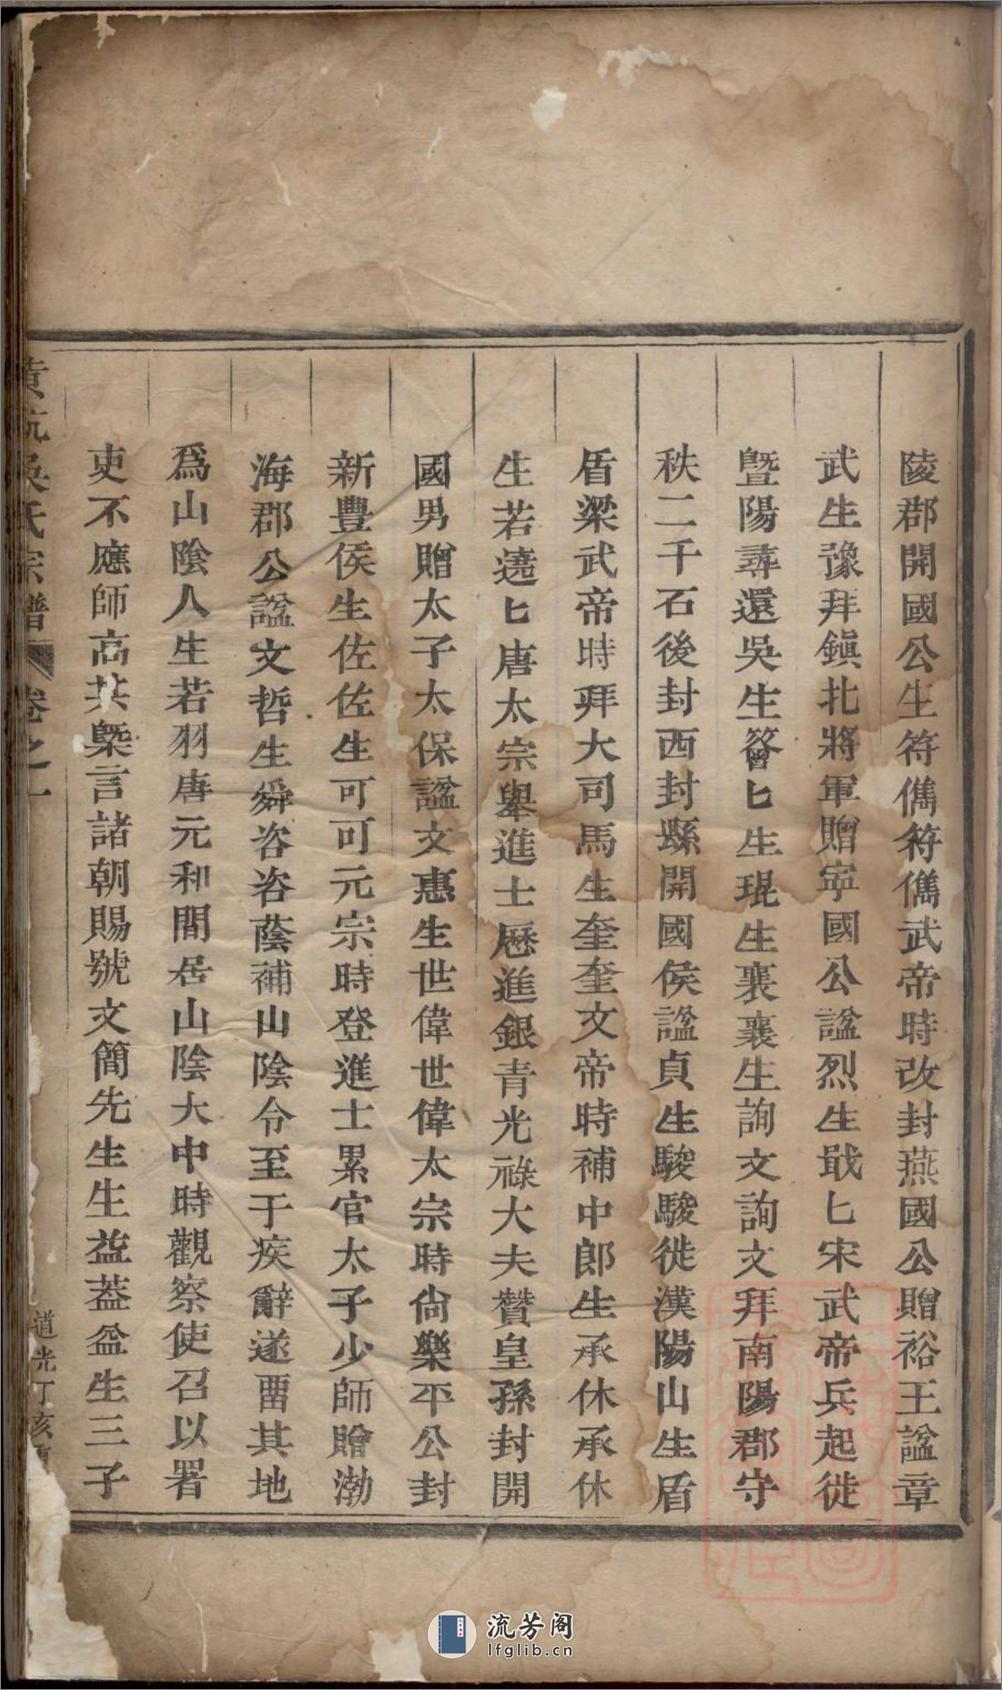 陵郡開國公生符儁符儁武帝時改封燕國公贈裕王諡章
武生豫拜鎮北將軍贈寜國公諡烈生戢匕宋武帝兵起徙
暨陽尋還吳生簦匕生琨生襄襄生詢文詢文拜南陽郡守
秩二千石後封西封縣開國侯諡貞生駿駿徙漢陽山生盾
盾梁武帝時拜大司馬生奎奎文帝時補中郎生承休承休
生若遶匕唐太宗舉進士歷進銀青光祿大夫贊皇孫封開
國男贈太子太保諡文惠生世偉世偉太宗時尙樂平公封
新豐侯生佐佐生可可元宗時登進士累官太子少師贈渤
海郡公諡文哲生舜咨咨蔭補山陰令至于疾辭遂畱其地
爲山陰人生若羽唐元和間居山陰大中時觀察使召以署
吏不應師高其槩言諸朝賜號文簡先生生益葢益生三子
黃 吳氏宗譜 卷之一 道光丁亥重
流芳阁
lfglib.cn